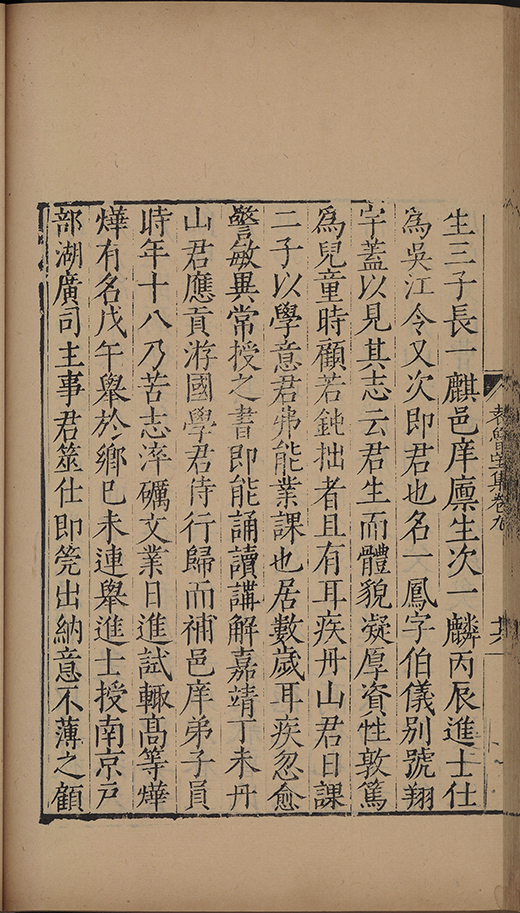 生三子長一麒邑庠廩生次一麟丙辰進士仕
為吳江令又次即君也名一鳳字伯儀别號翔
宇蓋以見其志云君生而體貌凝厚資性敦篤
為兒童時顧若鈍拙者且有耳疾丹山君日課
二子以學意君弗能業課也居數歲耳疾忽愈
警敏異常授之書即能誦讀講解嘉靖丁未丹
山君應貢游國學君侍行歸而補邑庠弟子員
時年十八乃苦志淬礪文業日進試輒高等燁
燁有名戊午舉於鄉巳未連舉進士授南京戸
部湖廣司主事君筮仕即筦出納意不薄之顧